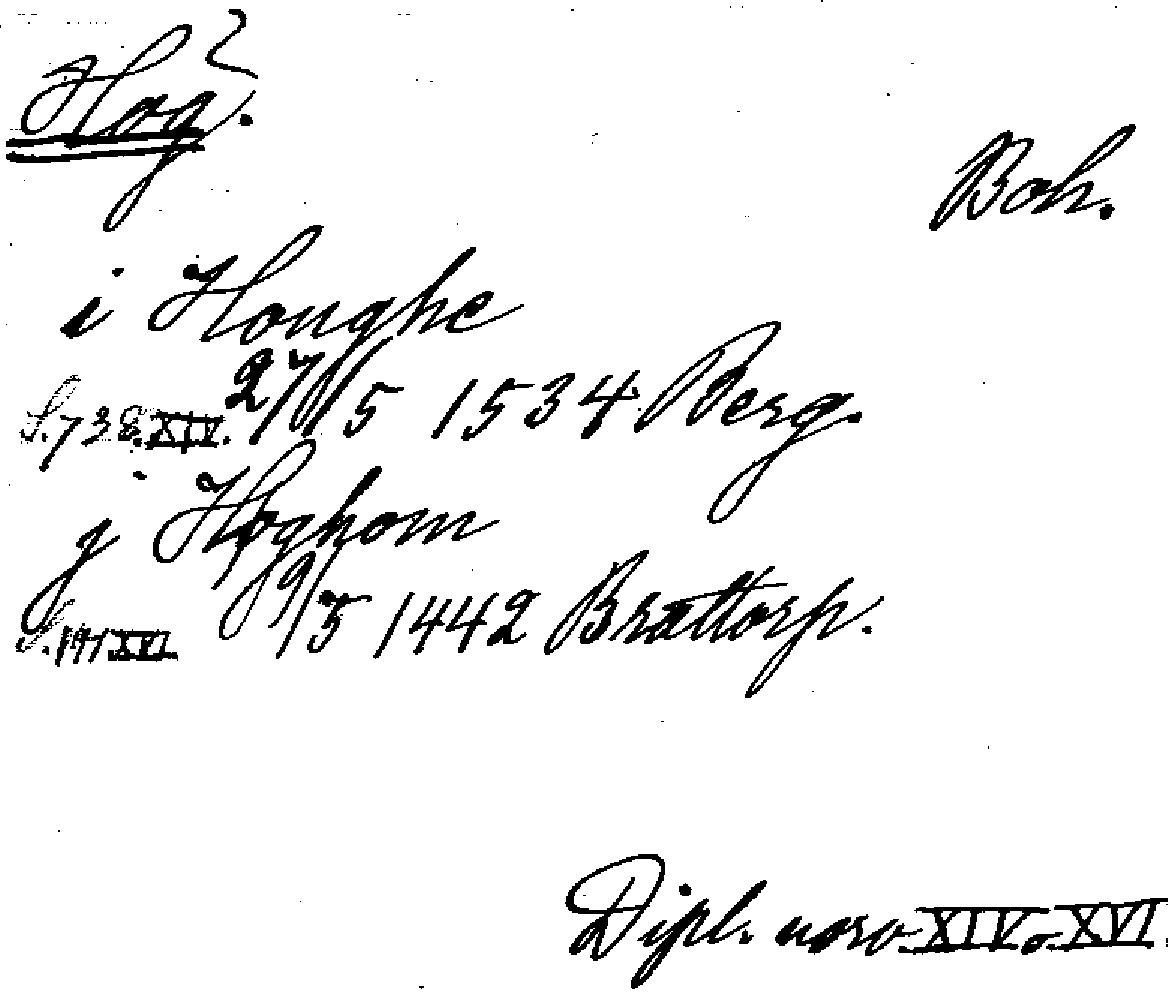 Hog?
Boh.
i Houghe
S. 738. XIV. 27/5 1534 Berg.
j Høghom
S. 141 XVI 9/5 1442 Brattorp.
Dipl. norv XIV o XVI.